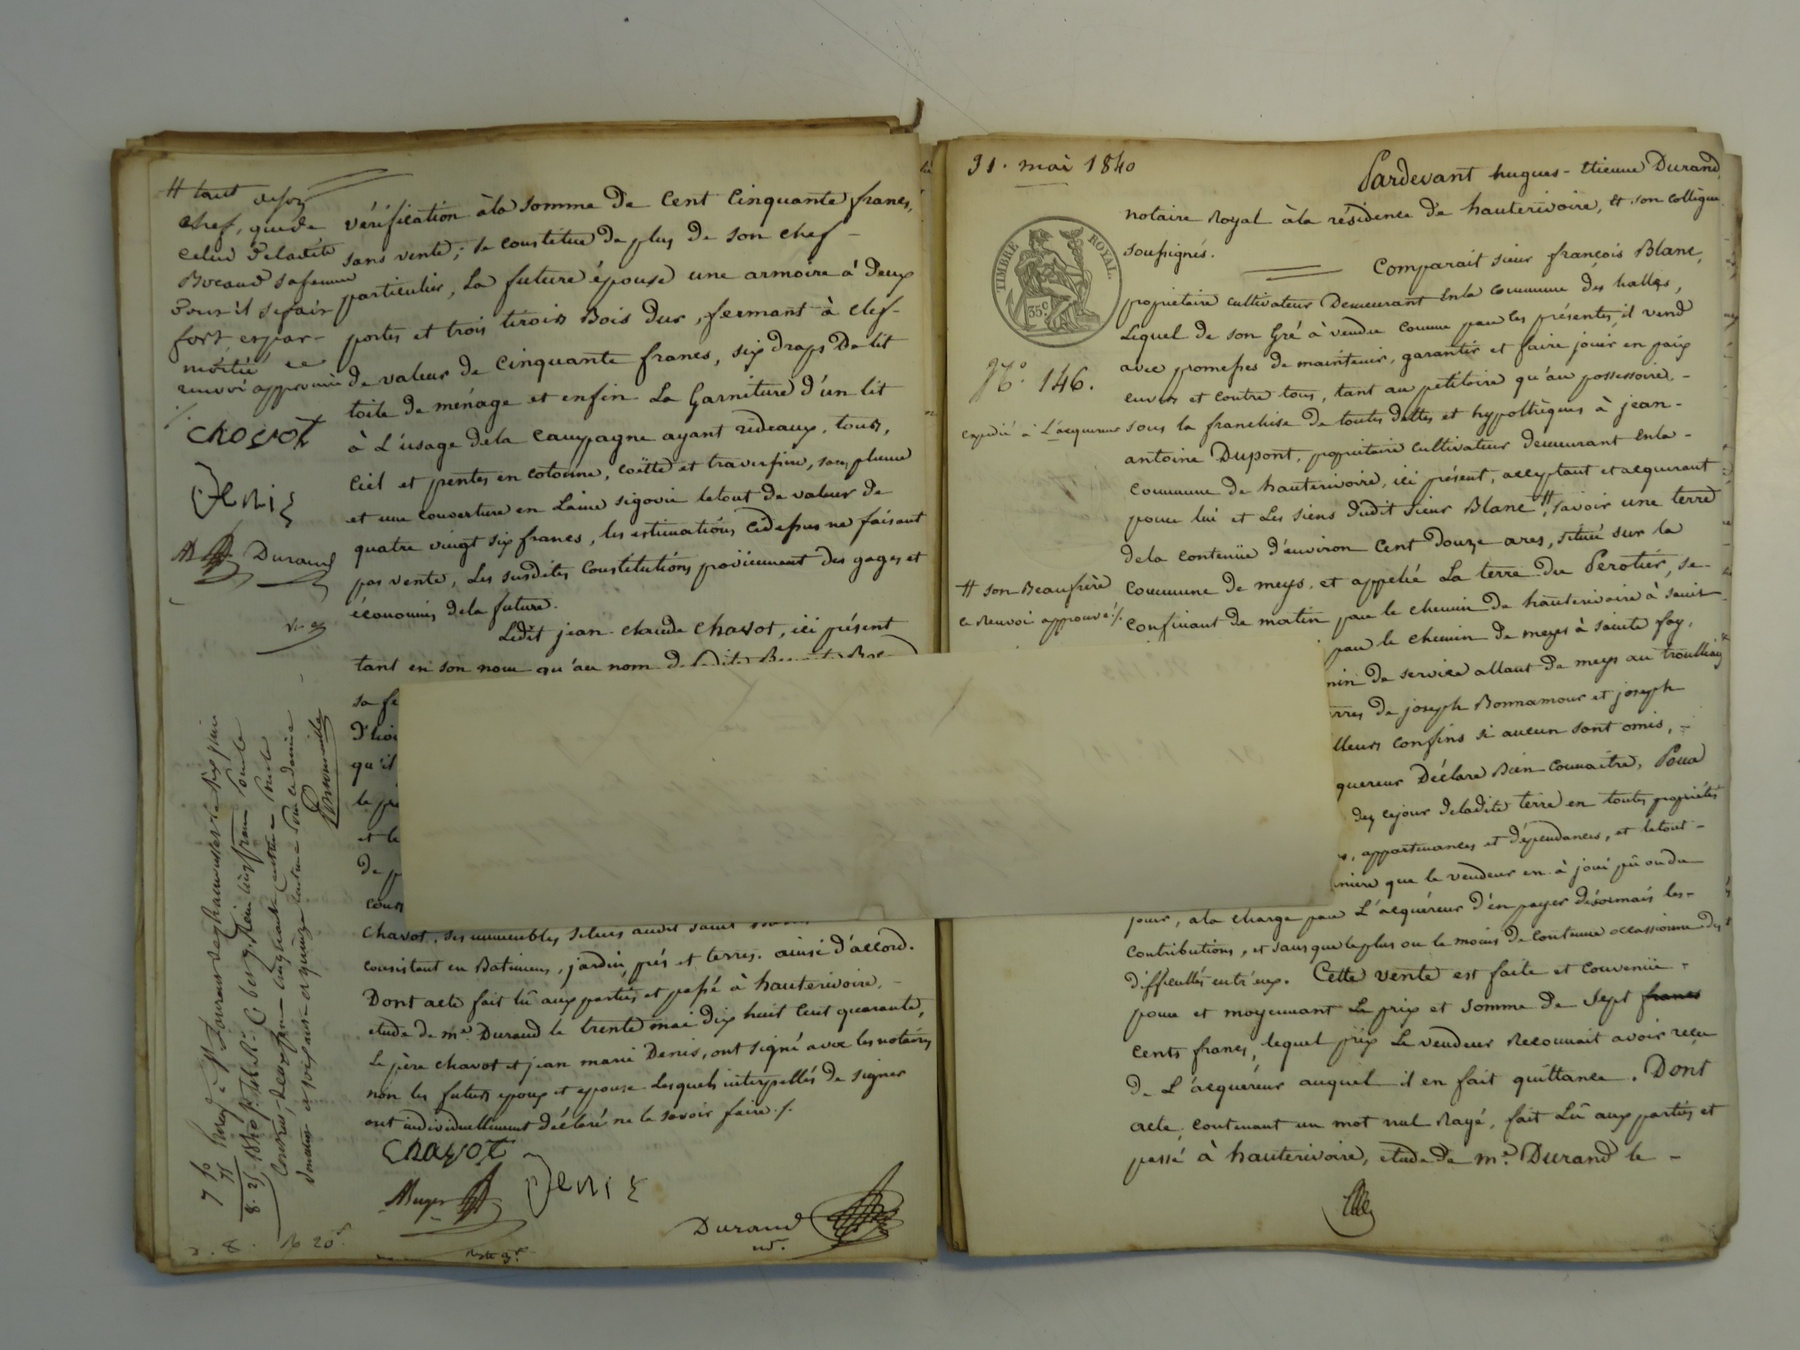 # tant de son
chef, que de
celui de ladite
sa femme
pour
fort
renvoi approuvé
Chavot
Denis
Durand
vérification à la somme de Cent Cinquante francs,
sans vente; se constitue de plus de son chef -
particulier, La future épouse une armoire à deux
portes et trois tiroirs Bois dur, fermant à clef -
de valeur de Cinquante francs, six draps De lit
toile de ménage et enfin La Garniture d'un lit
à L'usage dela Campagne ayant rideaux, tours,
Ciel et pentes en cotonne, coëtte et traversin, sans plume
et une couverture en Laine sigovie letout de valeur de
quatre vingt six francs, les estimations cidessus ne faisant
pas vente, Les susdites Constitutions proviennent des gages et
économies dela future.
Ledit jean-claude Chavot, ici présent
tant en son nom qu'au nom de
sa fe
qu'il
et le
Chavot, ses immeubles situés audit saint
consistent en Batimens, jardin, prés et terres. ainsi d'accord.
Dont acte fait lû aux parties et passé à hauterivoire, -
etude de me. Durand le trente mai dix huit Cent quarante,
Le père Chavot et jean marie Denis, ont signé avec les notaires
non les futurs epoux et epouse Lesquels interpellés de signer
ont individuellement déclaré ne le savoir faire ./.
Chavot
Denis
Durand
31. mai 1840
Pardevant hugues-Etienne Durand
notaire Royal à la résidence de hauterivoire, et son collègue
soussignés.
TIMBRE ROYAL.
35c
Comparait sieur françois Blanc,
propriétaire cultivateur Demeurant enla Commune des halles,
Lequel de son Gré à vendu comme par les présentes, il vend
avec promesses de maintenir, garantir et faire jouir en paix
No. 146.
envers et contre tous, tant au pétitoire qu'au possessoire, -
expédié à L'acquéreur
sous la franchise de toutes dettes et hypothèques à jean-
antoine Dupont, propriétaire cultivateur demeurant enla -
Commune de hauterivoire, ici présent, acceptant et acquérant
pour lui et Les siens dudit sieur Blanc #, savoir une terre
dela contenüe d'environ Cent Douze ares, située sur la
# son Beaufrère
ce Renvoi approuvé ./.
Commune de meys, et appelée La terre du Perotier, se -
Confinant de matin par le chemin de hauterivoire à saint
par le chemin de meys à sainte foy,
min de service allant de meys au
rres de joseph Bonnamour et joseph
lleurs confins si aucun sont omis, -
quereur Déclare Bien Connaitre, Pour
dez cejour deladite terre en toutes propriétés
s, appartenances et dépendances, et letout -
nière que le vendeur en à joui pû ou du
jouir, à la charge par L'acquéreur d'en payer désormais les -
Contributions, et sans que le plus ou le moins de Contenue occasionne des
difficultés entr'eux. Cette vente est faite et convenüe -
pour et moyennant Le prix et somme de sept francs
cents francs, lequel prix Le vendeur Reconnait avoir reçu
de L'acquéreur auquel il en fait quittance. Dont
acte, contenant un mot nul Rayé, fait Lû aux parties et
passé à hauterivoire, etude de me. Durand le -